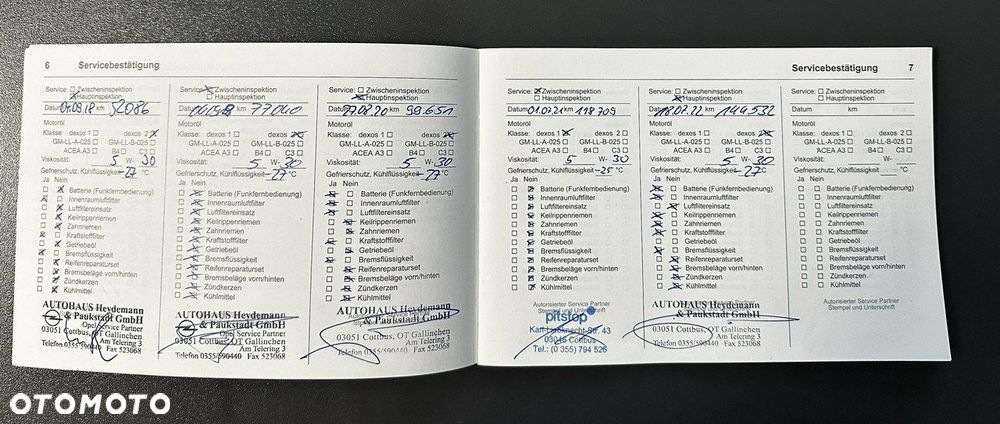 6 Servicebestätigung
Service: Zwischeninspektion
Hauptinspektion
Datum 04.09.18 km 52086
Motoröl
Klasse: dexos 1 dexos 2
GM-LL-A-025 GM-LL-B-025
ACEA A3 B4 C3
Viskosität: 5 W- 30
Gefrierschutz, Kühlflüssigkeit -27 °C
Ja Nein
Batterie (Funkfernbedienung)
Innenraumluftfilter
Luftfiltereinsatz
Keilrippenriemen
Zahnriemen
Kraftstofffilter
Getriebeöl
Bremsflüssigkeit
Reifenreparaturset
Bremsbeläge vorn/hinten
Zündkerzen
Kühlmittel
AUTOHAUS Heydemann
& Paukstadt GmbH
Opel Service Partner
03051 Cottbus, OT Gallinchen
Am Telering 3
Telefon 0355/590440 Fax 523068
Service: Zwischeninspektion
Hauptinspektion
Datum km 77040
Motoröl
Klasse: dexos 1 dexos 2
GM-LL-A-025 GM-LL-B-025
ACEA A3 B4 C3
Viskosität: 5 W- 30
Gefrierschutz, Kühlflüssigkeit -27 °C
Ja Nein
Batterie (Funkfernbedienung)
Innenraumluftfilter
Luftfiltereinsatz
Keilrippenriemen
Zahnriemen
Kraftstofffilter
Getriebeöl
Bremsflüssigkeit
Reifenreparaturset
Bremsbeläge vorn/hinten
Zündkerzen
Kühlmittel
AUTOHAUS Heydemann
& Paukstadt GmbH
Opel Service Partner
03051 Cottbus, OT Gallinchen
Am Telering 3
Telefon 0355/590440 Fax 523068
Service: Zwischeninspektion
Hauptinspektion
Datum 27.08.20 km 99.651
Motoröl
Klasse: dexos 1 dexos 2
GM-LL-A-025 GM-LL-B-025
ACEA A3 B4 C3
Viskosität: 5 W- 30
Gefrierschutz, Kühlflüssigkeit -27 °C
Ja Nein
Batterie (Funkfernbedienung)
Innenraumluftfilter
Luftfiltereinsatz
Keilrippenriemen
Zahnriemen
Kraftstofffilter
Getriebeöl
Bremsflüssigkeit
Reifenreparaturset
Bremsbeläge vorn/hinten
Zündkerzen
Kühlmittel
AUTOHAUS Heydemann
& Paukstadt GmbH
03051 Cottbus, OT Gallinchen
Am Telering 3
Telefon 0355/590440 Fax 523068
Servicebestätigung 7
Service: Zwischeninspektion
Hauptinspektion
Datum 01.07.21 km 118709
Motoröl
Klasse: dexos 1 dexos 2
GM-LL-A-025 GM-LL-B-025
ACEA A3 B4 C3
Viskosität: 5 W- 30
Gefrierschutz, Kühlflüssigkeit -25 °C
Ja Nein
Batterie (Funkfernbedienung)
Innenraumluftfilter
Luftfiltereinsatz
Keilrippenriemen
Zahnriemen
Kraftstofffilter
Getriebeöl
Bremsflüssigkeit
Reifenreparaturset
Bremsbeläge vorn/hinten
Zündkerzen
Kühlmittel
Autorisierter Service Partner
Stempel und Unterschrift
pitstop
Karl-Liebknecht-Str. 43
03046 Cottbus
Tel.: (0 355) 794 526
Service: Zwischeninspektion
Hauptinspektion
Datum km 144532
Motoröl
Klasse: dexos 1 dexos 2
GM-LL-A-025 GM-LL-B-025
ACEA A3 B4 C3
Viskosität: 5 W- 30
Gefrierschutz, Kühlflüssigkeit -27 °C
Ja Nein
Batterie (Funkfernbedienung)
Innenraumluftfilter
Luftfiltereinsatz
Keilrippenriemen
Zahnriemen
Kraftstofffilter
Getriebeöl
Bremsflüssigkeit
Reifenreparaturset
Bremsbeläge vorn/hinten
Zündkerzen
Kühlmittel
AUTOHAUS Heydemann
& Paukstadt GmbH
03051 Cottbus, OT Gallinchen
Am Telering 3
Telefon 0355/590440 Fax 523068
Service: Zwischeninspektion
Hauptinspektion
Datum km
Motoröl
Klasse: dexos 1 dexos 2
GM-LL-A-025 GM-LL-B-025
ACEA A3 B4 C3
Viskosität: W-
Gefrierschutz, Kühlflüssigkeit °C
Ja Nein
Batterie (Funkfernbedienung)
Innenraumluftfilter
Luftfiltereinsatz
Keilrippenriemen
Zahnriemen
Kraftstofffilter
Getriebeöl
Bremsflüssigkeit
Reifenreparaturset
Bremsbeläge vorn/hinten
Zündkerzen
Kühlmittel
Autorisierter Service Partner
Stempel und Unterschrift
OTOMOTO